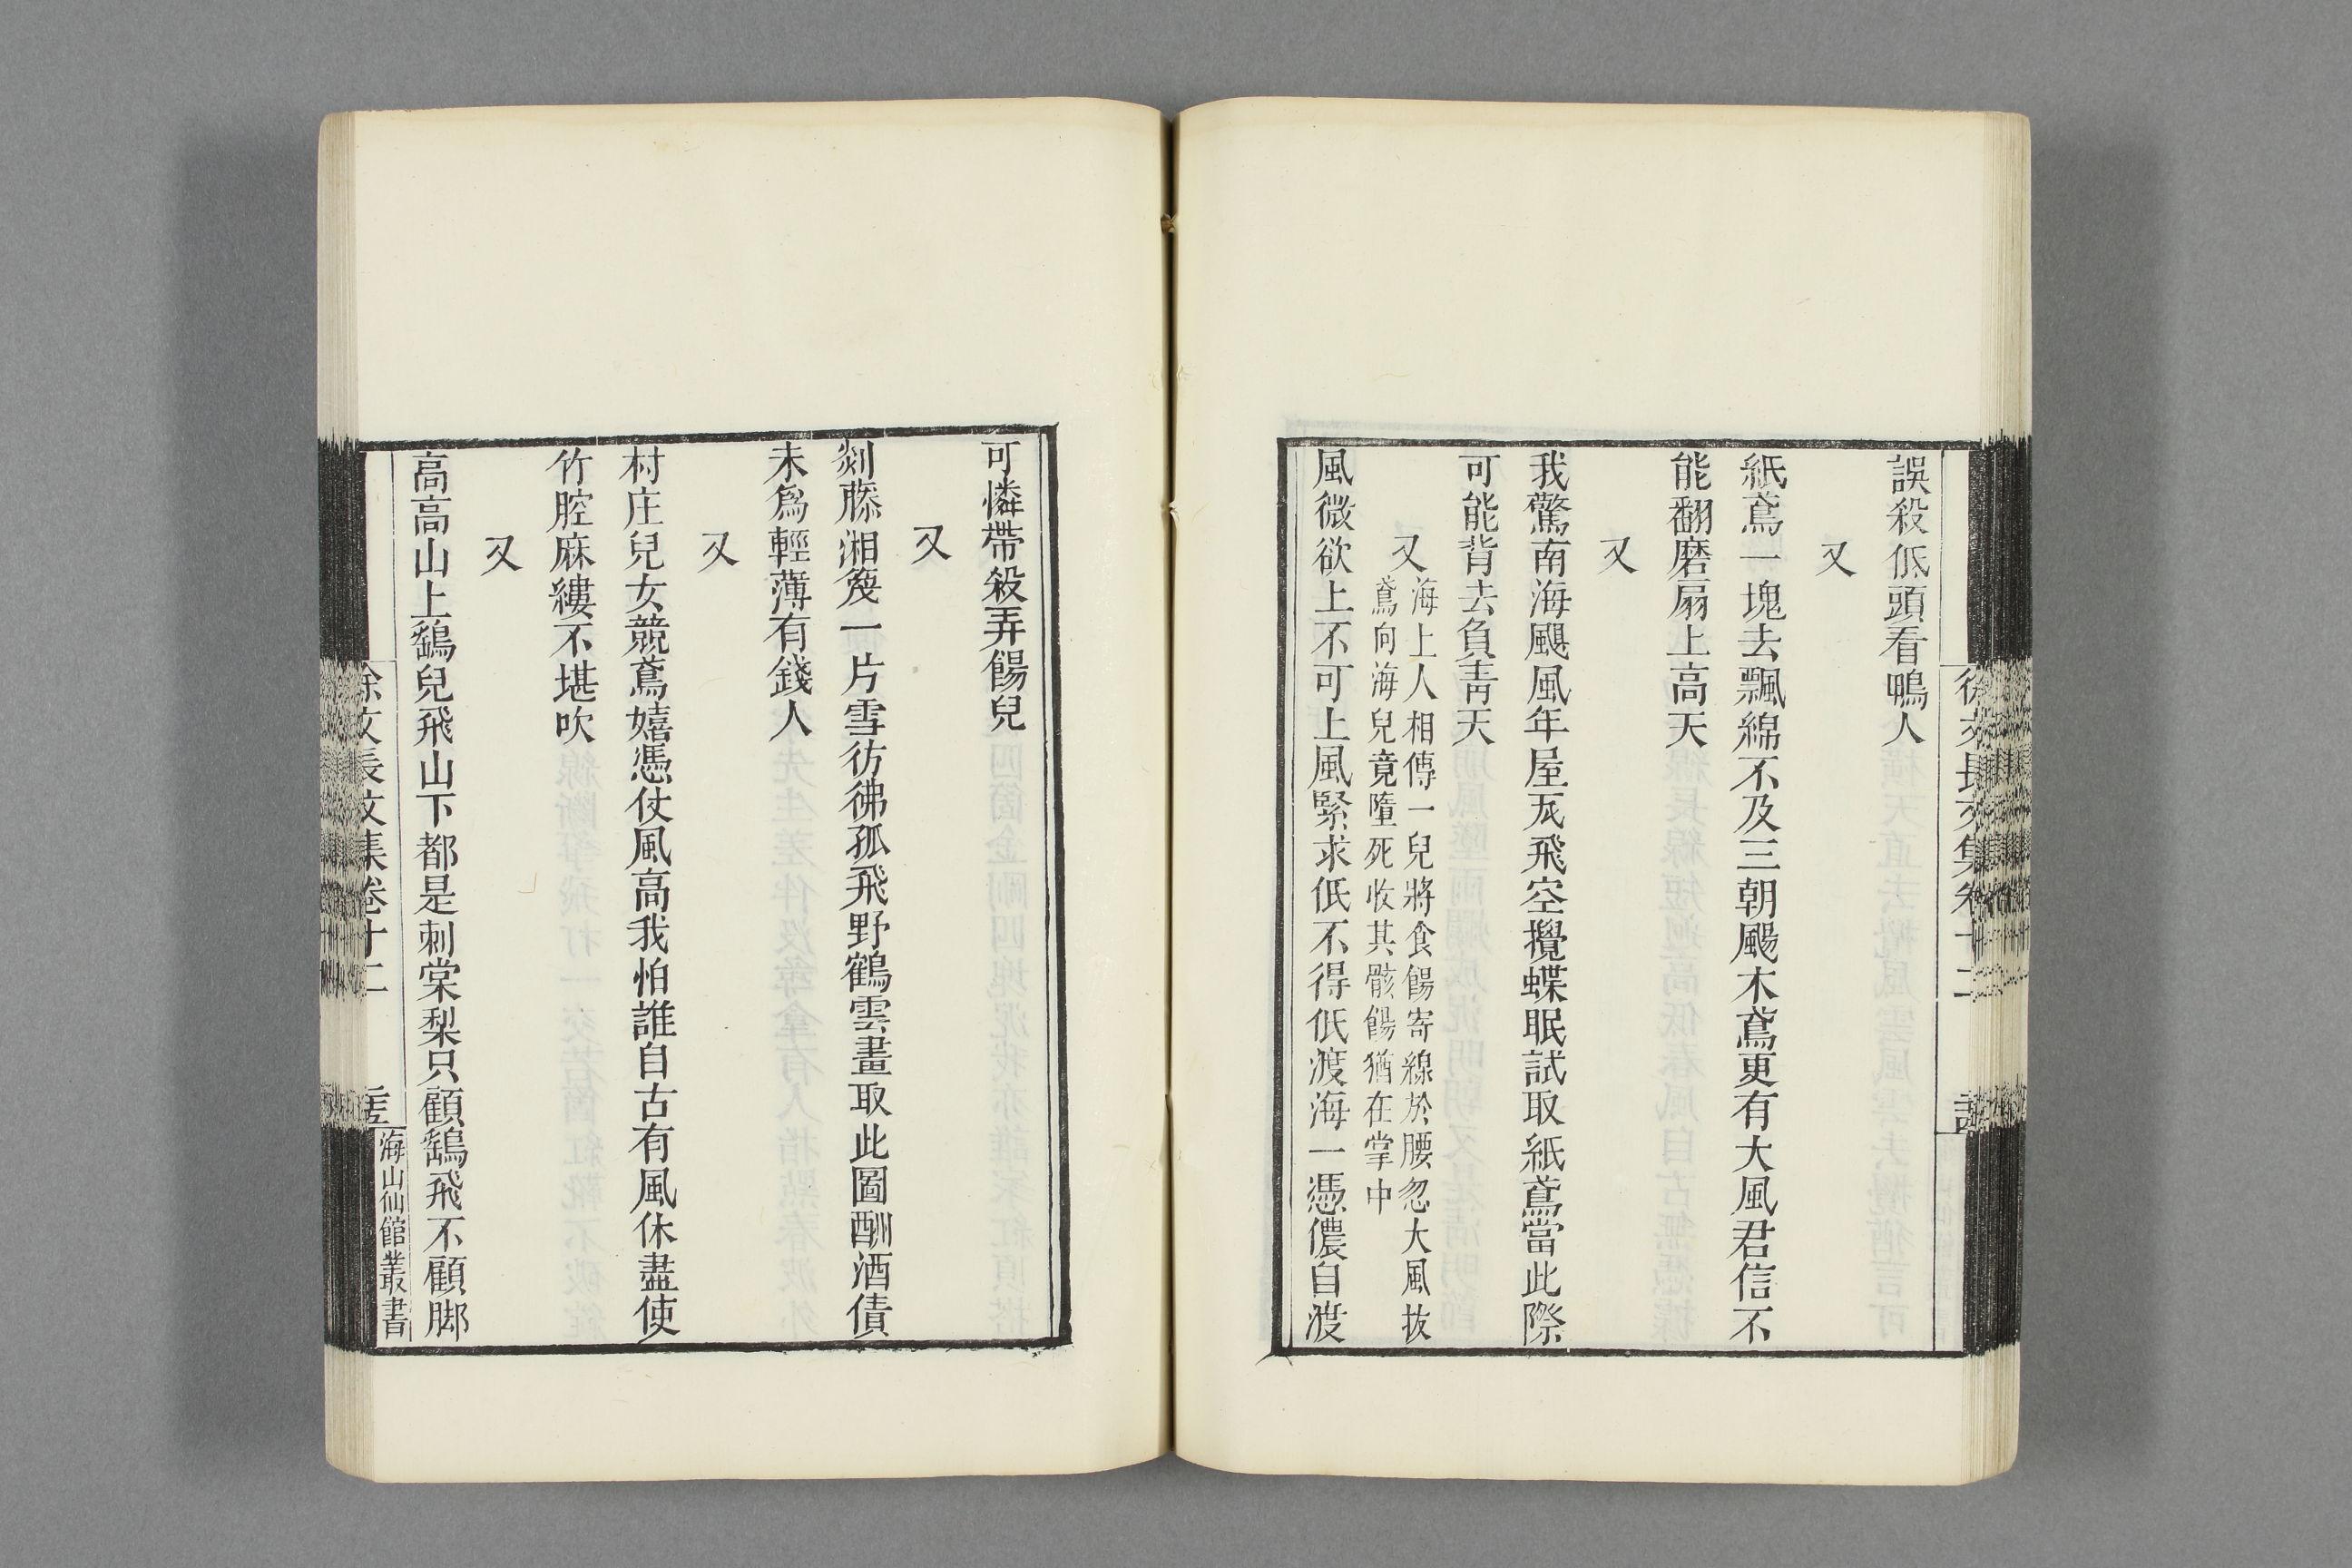 誤殺低頭看鴨人
又
紙鳶一塊去飄綿不及三朝颺木鳶更有大風君信不
能翻磨扇上高天
又
我驚南海颶風年屋瓦飛空攪蝶眠試取紙鳶當此際
可能背去負青天
又
海上人相傳一兒將食餳寄線於腰忽大風拔
鳶向海兒竟墮死收其骸餳猶在掌中
風微欲上不可上風緊求低不得低渡海一憑儂自渡
可憐帶殺弄餳兒
又
剡藤湘篾一片雪彷彿孤飛野鶴雲畫取此圖酬酒債
未爲輕薄有錢人
又
村庄兒女競鳶嬉憑仗風高我怕誰自古有風休盡使
竹腔麻縷不堪吹
又
高高山上鷂兒飛山下都是刺棠梨只顧鷂飛不顧脚
徐文長文集卷十二
海山仙館叢書